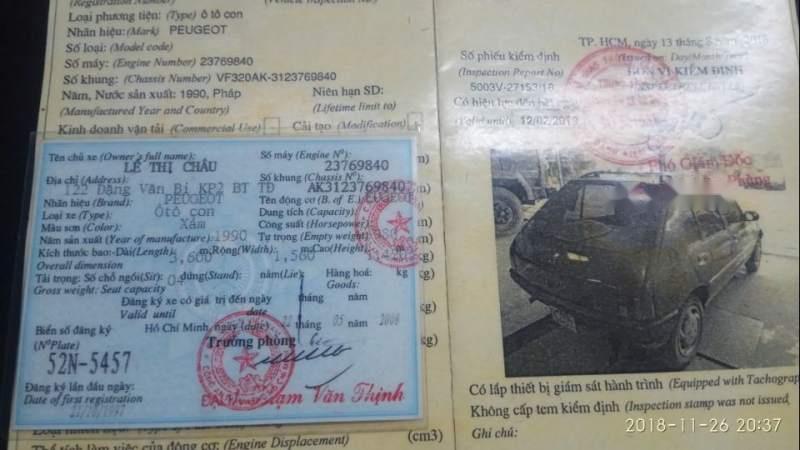 (Registration Number)
Loại phương tiện: (Type) ô tô con
Nhãn hiệu: (Mark) PEUGEOT
Số loại: (Model code)
Số máy: (Engine Number) 23769840
Số khung: (Chassis Number) VF320AK-3123769840
Năm, Nước sản xuất: 1990, Pháp
Niên hạn SD:
(Manufactured Year and Country)
(Lifetime limit to)
Kinh doanh vận tải (Commercial Use)
Cải tạo (Modification)
Tên chủ xe (Owner's full name):
LÊ THỊ CHÂU
Số máy (Engine Nº):
23769840
Địa chỉ (Address):
122 Đặng Văn Bi KP2 BT TĐ
Số khung (Chassis Nº):
AK3123769840
Nhãn hiệu (Brand): PEUGEOT
Tên động cơ (B. of E.)
Loại xe (Type): Ôtô con
Dung tích (Capacity):
Màu sơn (Color): Xám
Công suất (Horsepower):
Năm sản xuất (Year of manufacture): 1990
Tự trọng (Empty weight):
Kích thước bao- Dài(Length), 3,600 m,Rộng(Width): 1,560 m,Cao(Height),
Overall dimension
Tải trọng: Số chỗ ngồi(Sit): 04 đứng(Stand): nằm(Lie): Hàng hoá: kg
Gross weight: Seat capacity
Goods: kg
Đăng ký xe có giá trị đến ngày tháng năm
Valid until date
Biển số đăng ký
(NºPlate)
52N-5457
Hồ Chí Minh, ngày (date) 22 tháng 05 năm
Trưởng phòng
Phạm Văn Thịnh
Đăng ký lần đầu ngày:
Date of first registration
(Engine Displacement) (cm3)
TP. HCM, ngày 13 tháng
Số phiếu kiểm định
(Inspection Report No)
5003V-27153/18
ĐƠN VỊ KIỂM ĐỊNH
Có hiệu lực đến hết
(Valid until) 12/02/2019
Phó Giám Đốc
Có lắp thiết bị giám sát hành trình (Equipped with Tachograp
Không cấp tem kiểm định (Inspection stamp was not issued,
Ghi chú:
2018-11-26 20:37